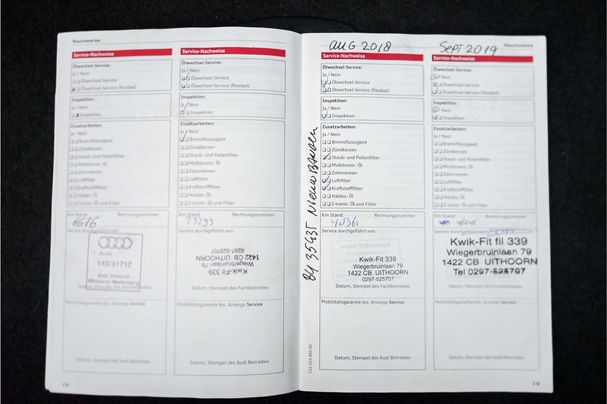 Nachweise
Service-Nachweise
Ölwechsel-Service:
Ja / Nein
Ölwechsel-Service
Ölwechsel-Service (flexibel)
Inspektion:
Ja / Nein
Inspektion
Zusatzarbeiten:
Ja / Nein
Bremsflüssigkeit
Zündkerzen
Staub- und Pollenfilter
Multitronic: Öl
Zahnriemen
Luftfilter
Kraftstofffilter
Haldex: Öl
S tronic: Öl und Filter
Km Stand:
Rechnungsnummer:
Service durchgeführt von:
Audi
143/31712
Datum, Stempel des Fachbetriebes
Mobilitätsgarantie bis: Anzeige Service
Datum, Stempel des Audi Betriebes
Service-Nachweise
Ölwechsel-Service:
Ja / Nein
Ölwechsel-Service
Ölwechsel-Service (flexibel)
Inspektion:
Ja / Nein
Inspektion
Zusatzarbeiten:
Ja / Nein
Bremsflüssigkeit
Zündkerzen
Staub- und Pollenfilter
Multitronic: Öl
Zahnriemen
Luftfilter
Kraftstofffilter
Haldex: Öl
S tronic: Öl und Filter
Km Stand:
Rechnungsnummer:
Service durchgeführt von:
Kwik-Fit 339
Wiegerbruinlaan 79
1422 CB UITHOORN
0297-525707
Datum, Stempel des Fachbetriebes
Mobilitätsgarantie bis: Anzeige Service
Datum, Stempel des Audi Betriebes
AUG 2018
Service-Nachweise
Ölwechsel-Service:
Ja / Nein
Ölwechsel-Service
Ölwechsel-Service (flexibel)
Inspektion:
Ja / Nein
Inspektion
Zusatzarbeiten:
Ja / Nein
Bremsflüssigkeit
Zündkerzen
Staub- und Pollenfilter
Multitronic: Öl
Zahnriemen
Luftfilter
Kraftstofffilter
Haldex: Öl
S tronic: Öl und Filter
Km Stand:
Rechnungsnummer:
Service durchgeführt von:
Kwik-Fit 339
Wiegerbruinlaan 79
1422 CB UITHOORN
0297-525707
Datum, Stempel des Fachbetriebes
Mobilitätsgarantie bis: Anzeige Service
Datum, Stempel des Audi Betriebes
SEPT 2019
Nachweise
Service-Nachweise
Ölwechsel-Service:
Ja / Nein
Ölwechsel-Service
Ölwechsel-Service (flexibel)
Inspektion:
Ja / Nein
Inspektion
Zusatzarbeiten:
Ja / Nein
Bremsflüssigkeit
Zündkerzen
Staub- und Pollenfilter
Multitronic: Öl
Zahnriemen
Luftfilter
Kraftstofffilter
Haldex: Öl
S tronic: Öl und Filter
Km Stand:
Rechnungsnummer:
Service durchgeführt von:
Kwik-Fit fil 339
Wiegerbruinlaan 79
1422 CB UITHOORN
Tel 0297-525707
Datum, Stempel des Fachbetriebes
Mobilitätsgarantie bis: Anzeige Service
Datum, Stempel des Audi Betriebes